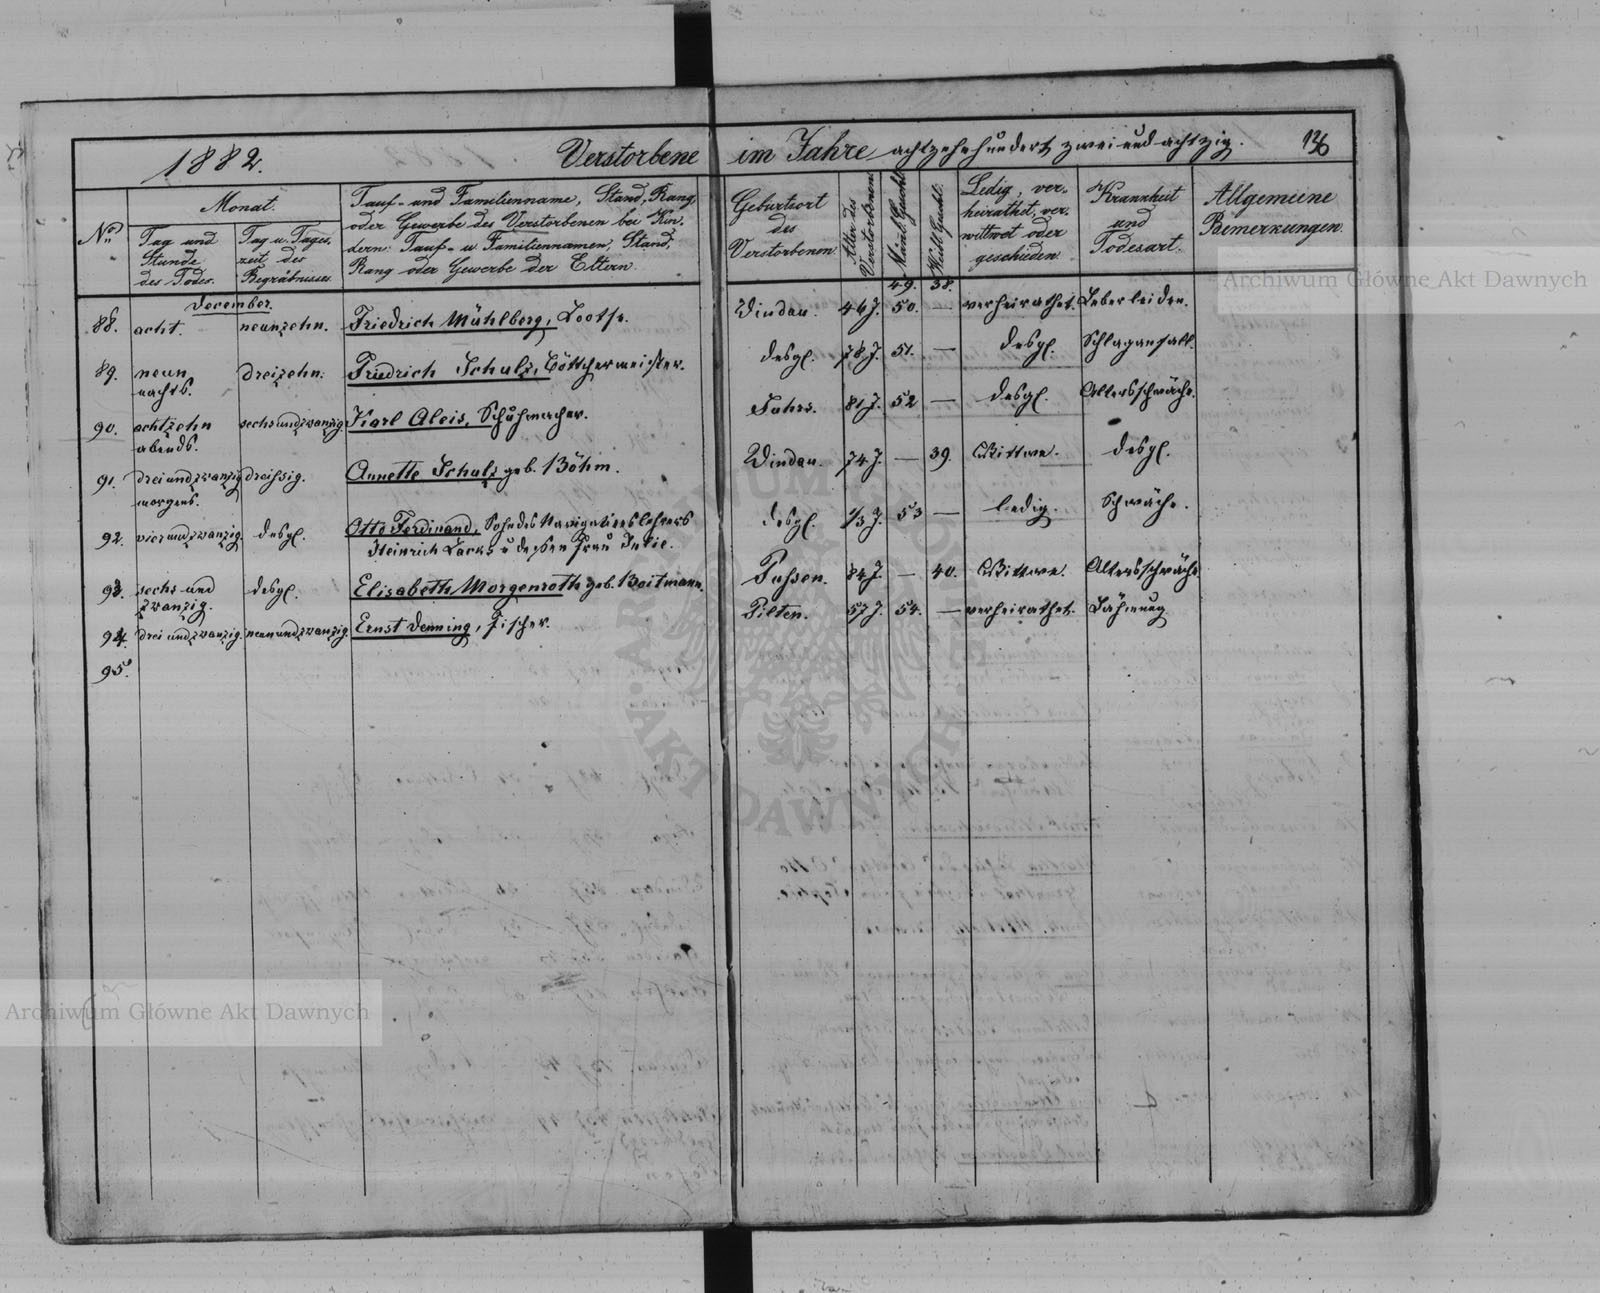 1882. Verstorbene im Jahre achtzehnhundert zwei und achtzig. 136
No.
Monat.
Tag und Stunde des Todes.
Tag u. Tages- zeit des Begräbnisses
Tauf- und Familienname, Stand, Rang
oder Gewerbe des Verstorbenen bei Kin-
dern: Tauf- u Familiennamen, Stand,
Rang oder Gewerbe der Eltern.
Geburtsort des Verstorbenen
Alter des Verstorbenen
Mänl. Geschl.
Weibl. Geschl.
Ledig, ver- heirathet, ver- wittwet oder geschieden
Krankheit und Todesart.
Allgemeine Bemerkungen.
49. 38.
December.
88. acht. neunzehn. Friedrich Mühlberg, Lootse. Windau. 46 J. 50. — verheirathet. Leberleiden.
89. neun nachts. dreizehn. Friedrich Schulz, Böttchermeister. desgl. 78 J. 51. — desgl. Schlaganfall.
90. achtzehn abends. sechsundzwanzig. Karl Aleis, Schuhmacher. 81 J. 52 — desgl. Altersschwäche.
91. drei und zwanzig morgens. dreissig. Annette Schulz geb. Böhm. Windau. 74 J. — 39. Wittwe. desgl.
92. vier und zwanzig. desgl. Otto Ferdinand, Sohn des Navigationslehrers
Heinrich u dessen Frau Julie. desgl. 1/3 J. 53 — ledig. Schwäche.
93. sechs und zwanzig. desgl. Elisabeth Morgenroth geb. Boitmann. Pussen. 84 J. — 40. Wittwe. Altersschwäche
94. drei und zwanzig. neun und zwanzig. Ernst Denning, Fischer. Pilten. 57 J. 54. — verheirathet. Lähmung
95.
Archiwum Główne Akt Dawnych
Archiwum Główne Akt Dawnych
ARCHIWUM GŁÓWNE AKT DAWNYCH